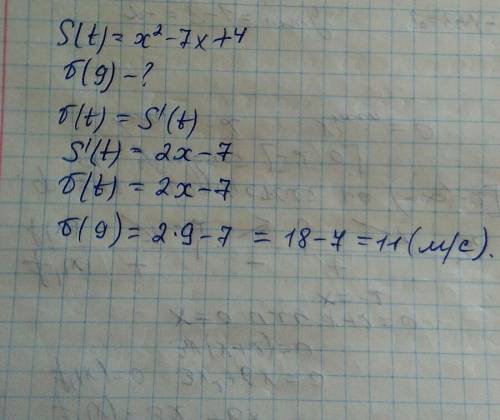 S(t) = x² - 7x + 4
v(9) - ?
v(t) = S'(t)
S'(t) = 2x - 7
v(t) = 2x - 7
v(9) = 2·9 - 7 = 18 - 7 = 11 (м/с).